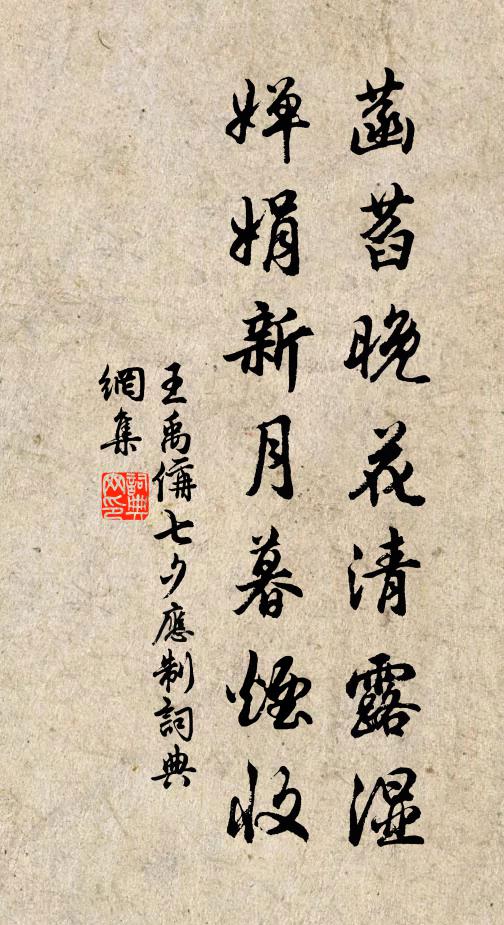 菡萏晚花清露湿
嬋娟新月暮煙收
王禹偁七夕應制詞典
網集
詞典網印